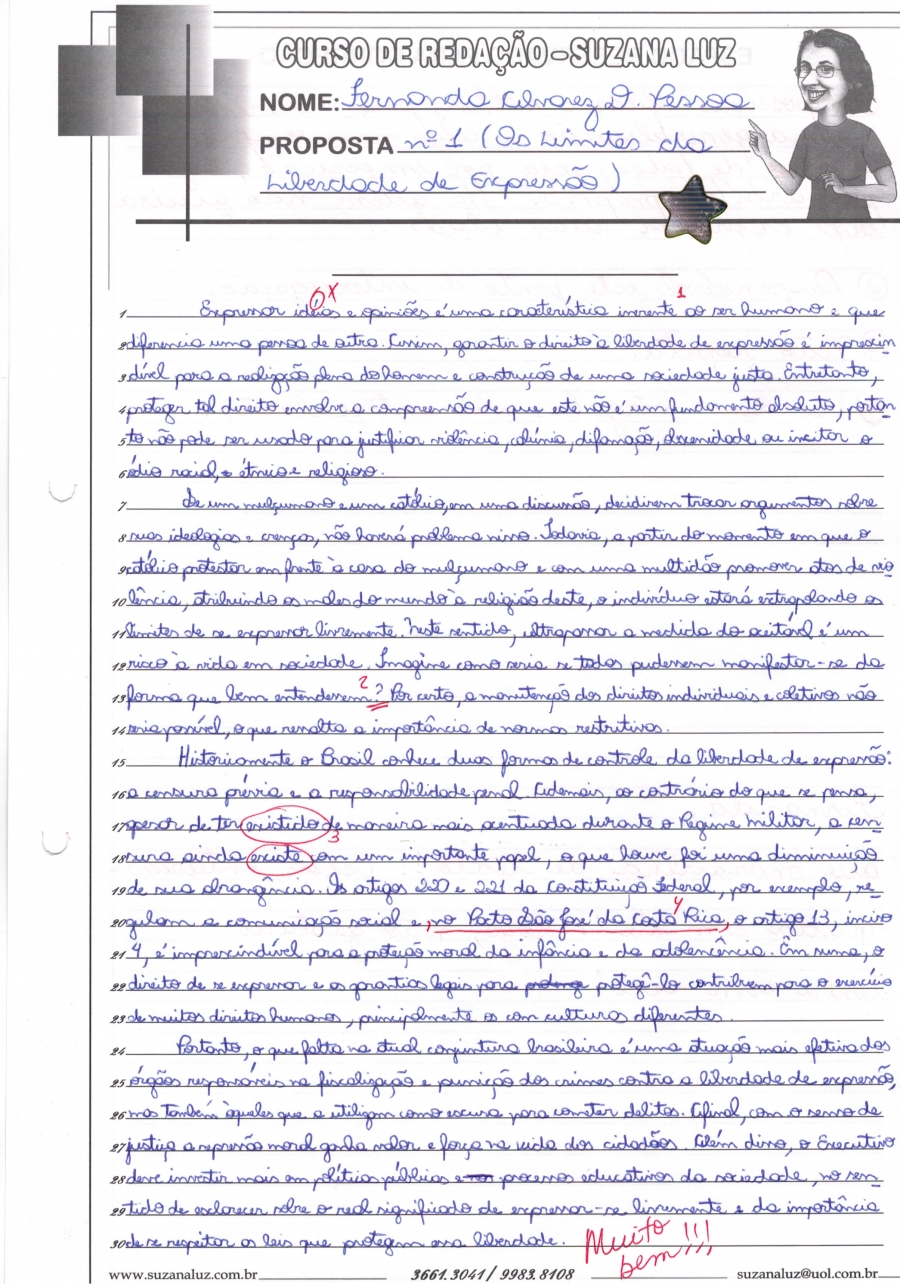 CURSO DE REDAÇÃO - SUZANA LUZ
NOME: Fernanda Alvarez D. Pessoa
PROPOSTA nº 1 (Os Limites da
Liberdade de Expressão)
x 1
1 Expressar idéias e opiniões é uma característica inerente ao ser humano e que
2 diferencia uma pessoa de outra. Assim, garantir o direito à liberdade de expressão é imprescin
3 dível para a realização plena do homem e construção de uma sociedade justa. Entretanto,
4 proteger tal direito envolve a compreensão de que este não é um fundamento absoluto, portan
5 to não pode ser usado para justificar violência, calúnia, difamação, obscenidade ou incitar o
6 ódio racial, étnico e religioso.
7 Se um mulçumano e um católico, em uma discussão, decidirem trocar argumentos sobre
8 suas ideologias e crenças, não haverá problema nisso. Todavia, a partir do momento em que o
9 católico protestar em frente à casa do mulçumano e com uma multidão promover atos de vio
10 lência, atribuindo os males do mundo à religião deste, o indivíduo estará extrapolando os
11 limites de se expressar livremente. Neste sentido, ultrapassar a medida do aceitável é um
12 risco à vida em sociedade. Imagine como seria se todos pudessem manifestar-se da
2
13 forma que bem entendessem? Por certo, a manutenção dos direitos individuais e coletivos não
14 seria possível, o que ressalta a importância de normas restritivas.
15 Historicamente o Brasil conhece duas formas de controle da liberdade de expressão:
16 a censura prévia e a responsabilidade penal. Ademais, ao contrário do que se pensa,
17 apesar de ter existido de maneira mais acentuada durante o Regime Militar, a cen
3
18 sura ainda existe com um importante papel, o que houve foi uma diminuição
19 de sua abrangência. Os artigos 220 e 221 da Constituição Federal, por exemplo, re
4
20 gulam a comunicação social e, no Pacto São José da Costa Rica, o artigo 13, inciso
21 4, é imprescindível para a proteção moral da infância e da adolescência. Em suma, o
22 direito de se expressar e as garantias legais para protegê-lo contribuem para o exercício
23 de muitos direitos humanos, principalmente os com culturas diferentes.
24 Portanto, o que falta na atual conjuntura brasileira é uma atuação mais efetiva dos
25 órgãos responsáveis na fiscalização e punição dos crimes contra a liberdade de expressão,
26 mas também àqueles que a utilizam como escusa para cometer delitos. Afinal, com o senso de
27 justiça a repressão moral ganha valor e força na vida dos cidadãos. Além disso, o Executivo
28 deve investir mais em políticas públicas e processos educativos da sociedade, no sen
29 tido de esclarecer sobre o real significado de expressar-se livremente e da importância
30 de se respeitar as leis que protegem essa liberdade.
Muito
bem!!!
www.suzanaluz.com.br 3661.3041 / 9983.8108 suzanaluz@uol.com.br